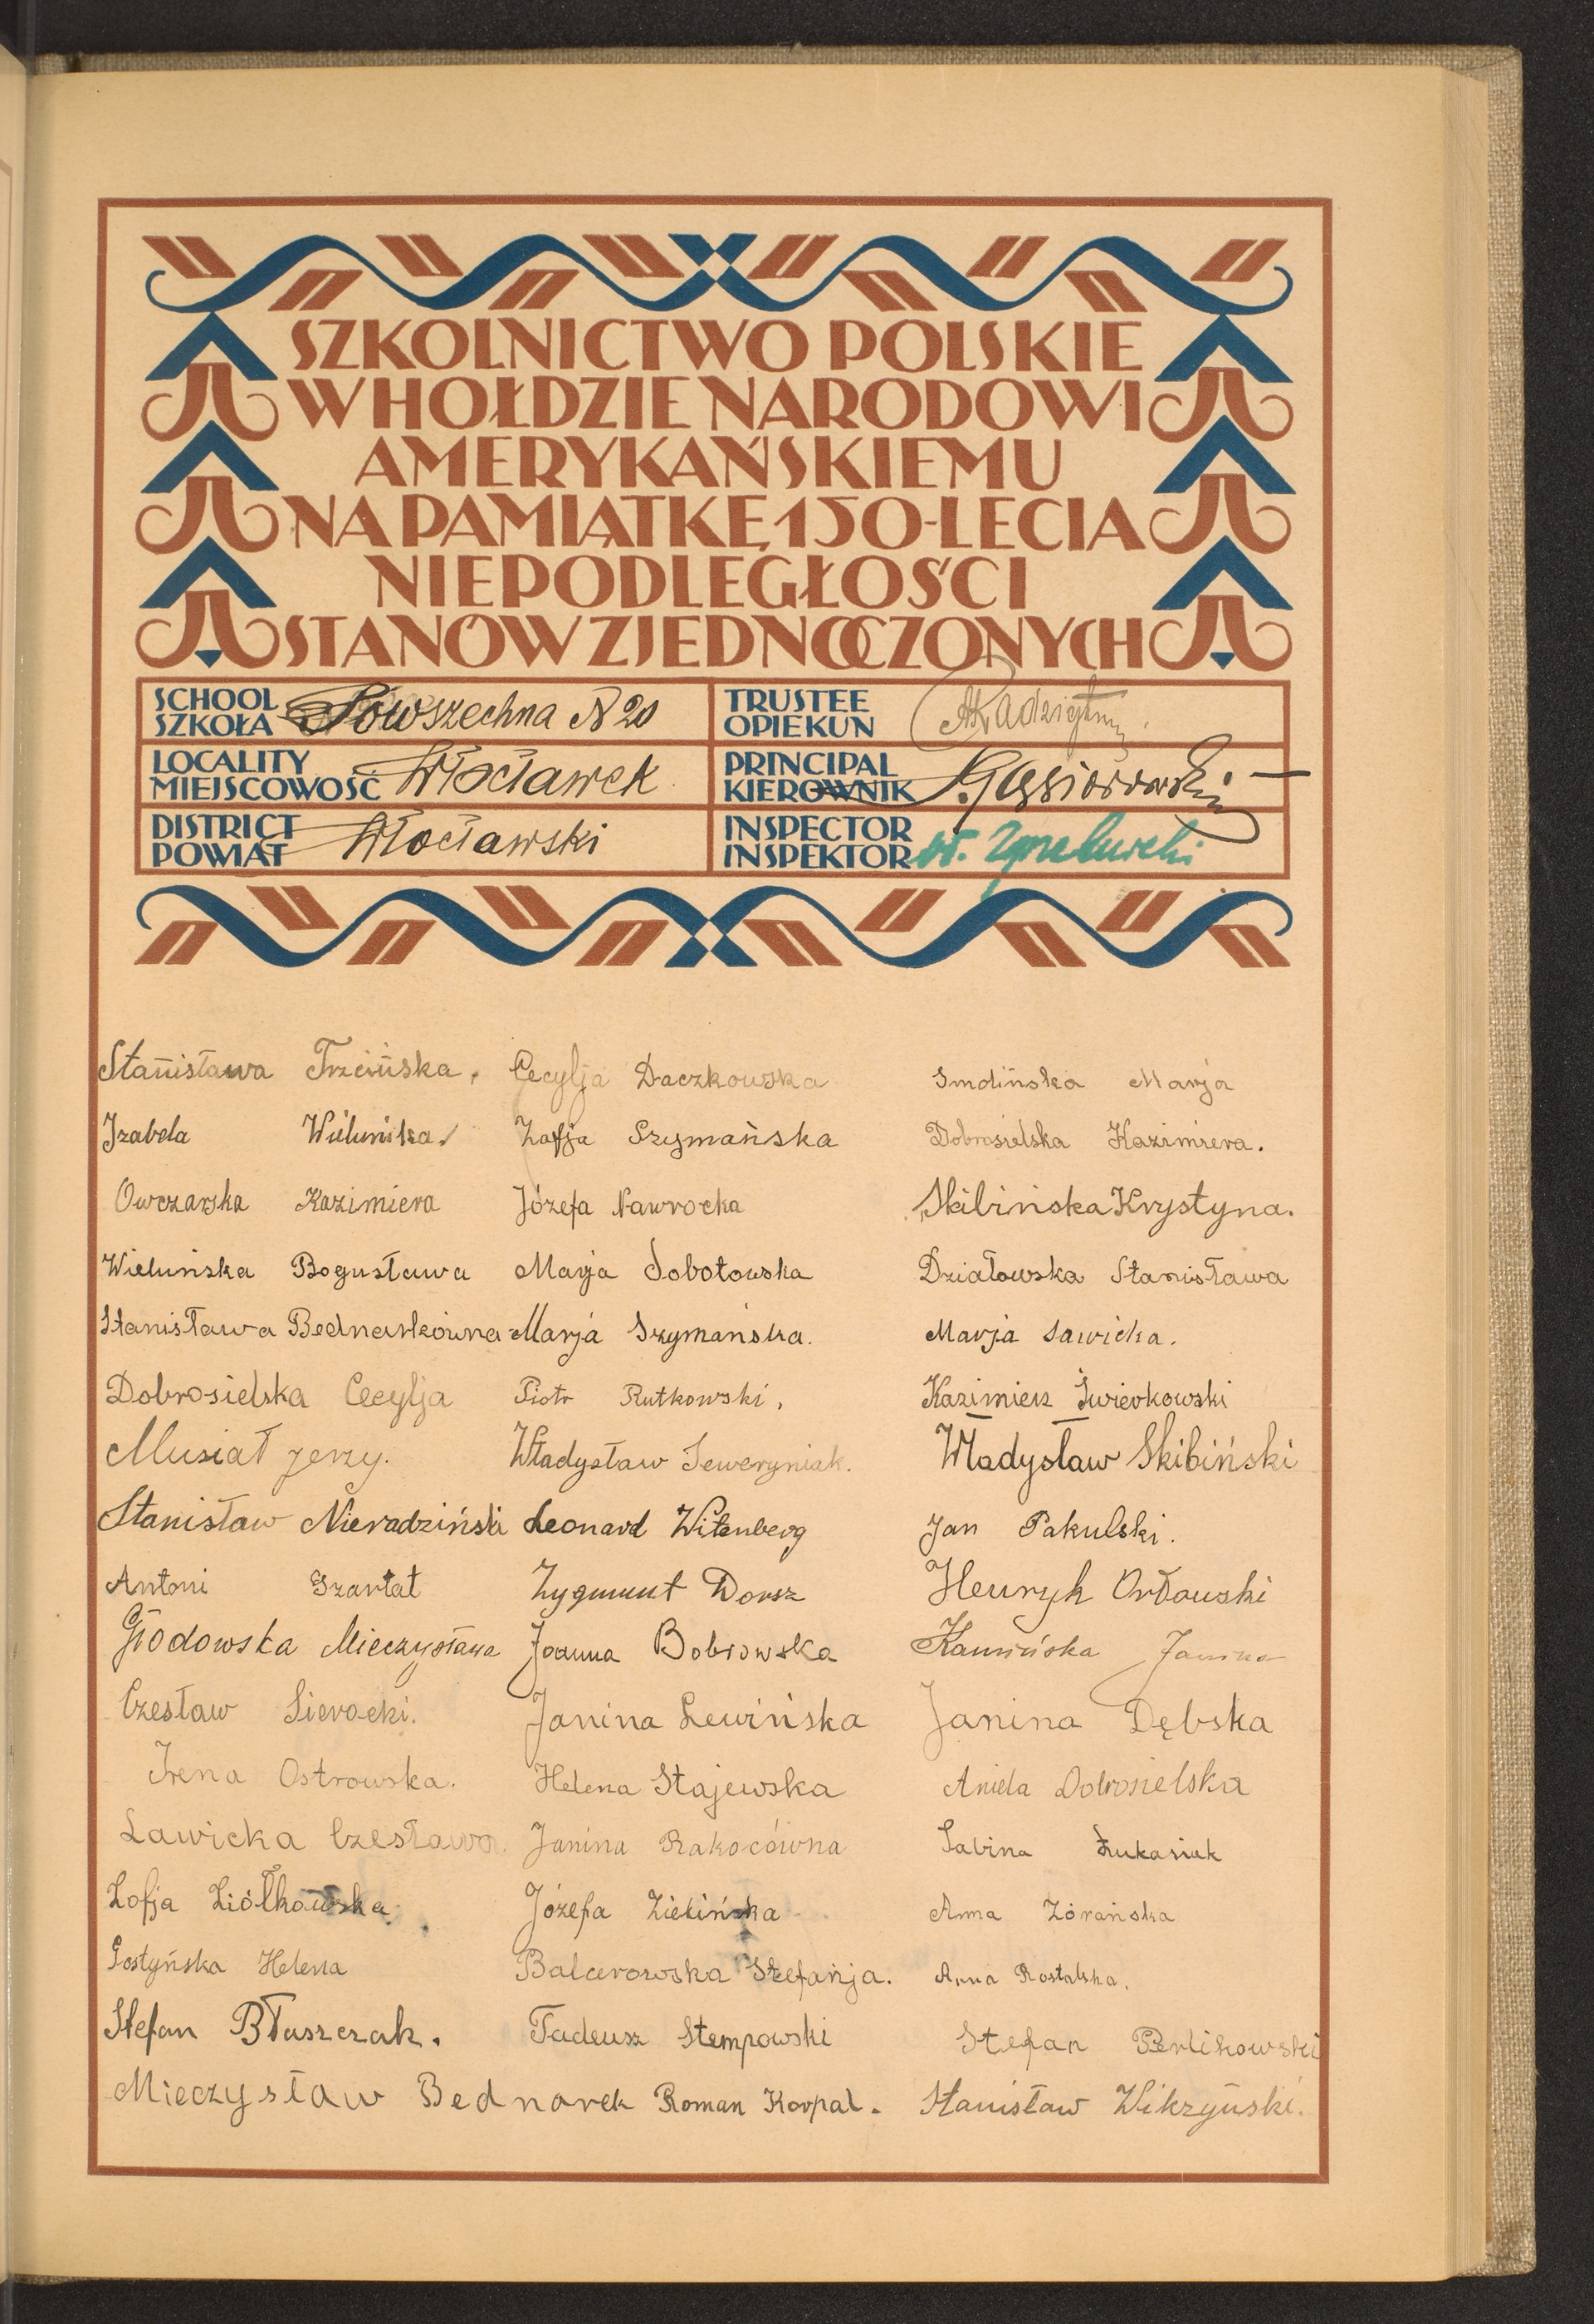 SZKOLNICTWO POLSKIE
W HOŁDZIE NARODOWI
AMERYKAŃSKIEMU
NA PAMIĄTKĘ 150-LECIA
NIEPODLEGŁOŚCI
STANÓW ZJEDNOCZONYCH
SCHOOL
SZKOŁA
Powszechna N 20
TRUSTEE
OPIEKUN
LOCALITY
MIEJSCOWOŚĆ
Włocławek
PRINCIPAL
KIEROWNIK
S. Gąsiorowski
DISTRICT
POWIAT
Włocławski
INSPECTOR
INSPEKTOR
Stanisława Trzcińska. Cecylja Daczkowska Smolińska Marja
Izabela Wieluńska. Zofja Szymańska Dobrosielska Kazimiera.
Owczarska Kazimiera Józefa Nawrocka Skibińska Krystyna.
Wieluńska Bogusława Marja Sobotowska Działowska Stanisława
Stanisława Bednarkówna Marja Szymańska. Marja Sawicka.
Dobrosielska Cecylja Piotr Rutkowski, Kazimierz Świerkowski
Musiał Jerzy. Władysław Seweryniak. Władysław Skibiński
Stanisław Nieradziński Leonard Witenberg Jan Pakulski.
Antoni Szartat Zygmunt Dorsz Henryk Orłowski
Głodowska Mieczysława Joanna Bobrowska Kamińska Janina
Czesław Sierocki. Janina Lewińska Janina Dębska
Irena Ostrowska. Helena Stajewska Aniela Dobrosielska
Ławicka Czesława. Janina Rakocówna Sabina Łukasiak
Zofja Ziółkowska. Józefa Zielińska Anna Żórańska
Gostyńska Helena Balcerowska Stefanja. Anna Rostalska.
Stefan Błaszczak. Tadeusz Stempowski Stefan Perlikowski
Mieczysław Bednarek Roman Korpal. Stanisław Wikzyński.